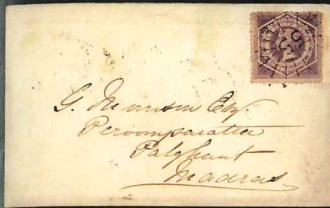 G. Morrison Esq
Peroomparatta
Palghaut
Madras